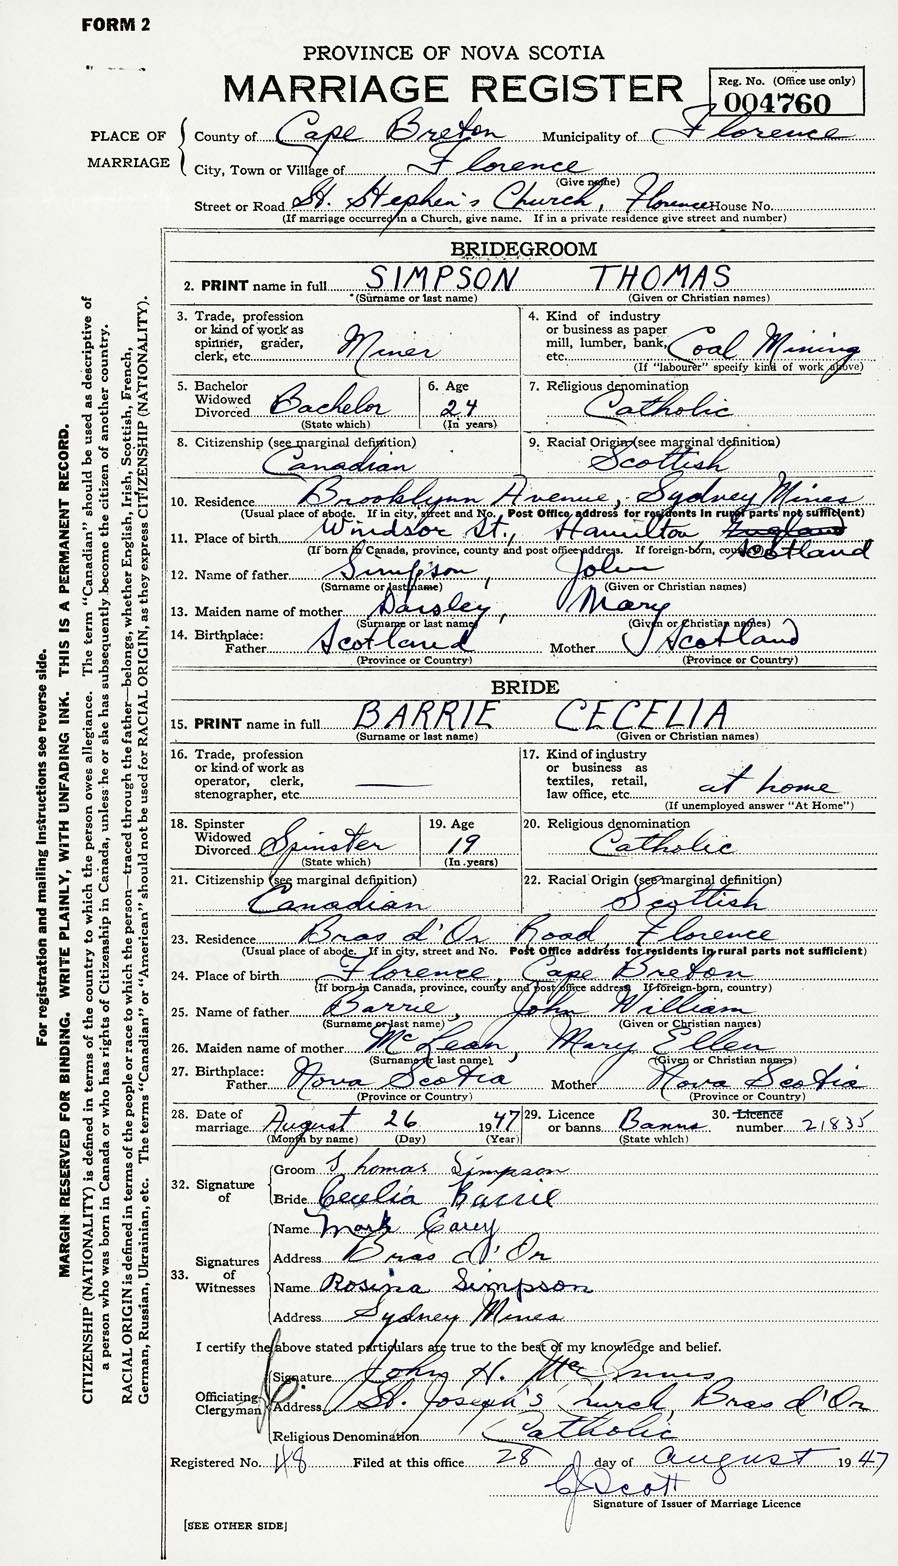 FORM 2
PROVINCE OF NOVA SCOTIA
MARRIAGE REGISTER
Reg. No. (Office use only)
004760
PLACE OF MARRIAGE
County of Cape Breton Municipality of Florence
City, Town or Village of Florence
(Give name)
Street or Road St. Stephen's Church, Florence House No.
(If marriage occurred in a Church, give name. If in a private residence give street and number)
BRIDEGROOM
2. PRINT name in full SIMPSON THOMAS
(Surname or last name) (Given or Christian names)
3. Trade, profession or kind of work as spinner, grader, clerk, etc. Miner
4. Kind of industry or business as paper mill, lumber, bank, etc. Coal Mining
(If "labourer" specify kind of work above)
5. Bachelor Widowed Divorced Bachelor
(State which)
6. Age 24
(In years)
7. Religious denomination
Catholic
8. Citizenship (see marginal definition)
Canadian
9. Racial Origin (see marginal definition)
Scottish
10. Residence Brooklynn Avenue, Sydney Mines
(Usual place of abode. If in city, street and No. Post Office address for residents in rural parts not sufficient)
11. Place of birth Windsor St., Hamilton, England Scotland
(If born in Canada, province, county and post office address. If foreign-born, country)
12. Name of father Simpson, John
(Surname or last name) (Given or Christian names)
13. Maiden name of mother Daisley, Mary
(Surname or last name) (Given or Christian names)
14. Birthplace:
Father Scotland Mother Scotland
(Province or Country) (Province or Country)
BRIDE
15. PRINT name in full BARRIE CECELIA
(Surname or last name) (Given or Christian names)
16. Trade, profession or kind of work as operator, clerk, stenographer, etc. —
17. Kind of industry or business as textiles, retail, law office, etc. at home
(If unemployed answer "At Home")
18. Spinster Widowed Divorced Spinster
(State which)
19. Age 19
(In years)
20. Religious denomination
Catholic
21. Citizenship (see marginal definition)
Canadian
22. Racial Origin (see marginal definition)
Scottish
23. Residence Bras d'Or Road Florence
(Usual place of abode. If in city, street and No. Post Office address for residents in rural parts not sufficient)
24. Place of birth Florence, Cape Breton
(If born in Canada, province, county and post office address. If foreign-born, country)
25. Name of father Barrie, John William
(Surname or last name) (Given or Christian names)
26. Maiden name of mother McLean, Mary Ellen
(Surname or last name) (Given or Christian names)
27. Birthplace:
Father Nova Scotia Mother Nova Scotia
(Province or Country) (Province or Country)
28. Date of marriage August 26 1947
(Month by name) (Day) (Year)
29. Licence or banns Banns
(State which)
30. Licence number 21835
32. Signature of
Groom Thomas Simpson
Bride Cecelia Barrie
33. Signatures of Witnesses
Name Mark Carey
Address Bras d'Or
Name Rosina Simpson
Address Sydney Mines
I certify the above stated particulars are true to the best of my knowledge and belief.
Officiating Clergyman
Signature John H.
Address St. Joseph's Church, Bras d'Or
Religious Denomination Catholic
Registered No. 48 Filed at this office 28 day of August 1947
CJ Scott
Signature of Issuer of Marriage Licence
[SEE OTHER SIDE]
For registration and mailing instructions see reverse side.
MARGIN RESERVED FOR BINDING. WRITE PLAINLY, WITH UNFADING INK. THIS IS A PERMANENT RECORD.
CITIZENSHIP (NATIONALITY) is defined in terms of the country to which the person owes allegiance. The term "Canadian" should be used as descriptive of
a person who was born in Canada or who has rights of Citizenship in Canada, unless he or she has subsequently become the citizen of another country.
RACIAL ORIGIN is defined in terms of the people or race to which the person—traced through the father—belongs, whether English, Irish, Scottish, French,
German, Russian, Ukrainian, etc. The terms "Canadian" or "American" should not be used for RACIAL ORIGIN, as they express CITIZENSHIP (NATIONALITY).